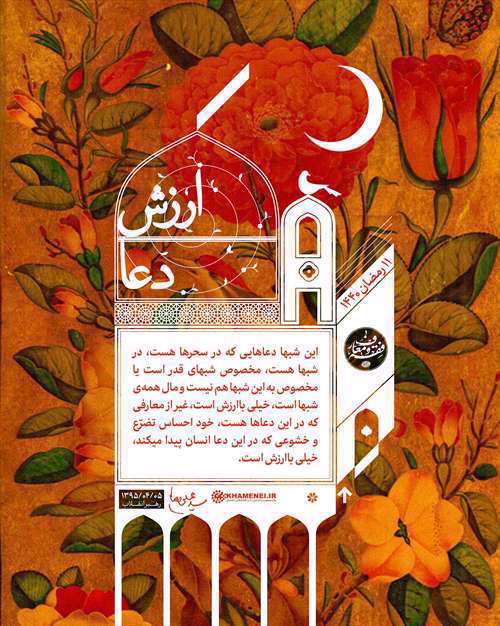 ارزش
دعا
۱۱ رمضان ۱۴۴۰
فقه و معارف
این شبها دعاهایی که در سحرها هست، در
شبها هست، مخصوص شبهای قدر است یا
مخصوص به این شبها هم نیست و مال همه‌ی
شبها است، خیلی باارزش است، غیر از معارفی
که در این دعاها هست، خود احساس تضرّع
و خشوعی که در این دعا انسان پیدا میکند،
خیلی باارزش است.
۱۳۹۵/۰۴/۰۵
رهبر انقلاب
KHAMENEI.IR